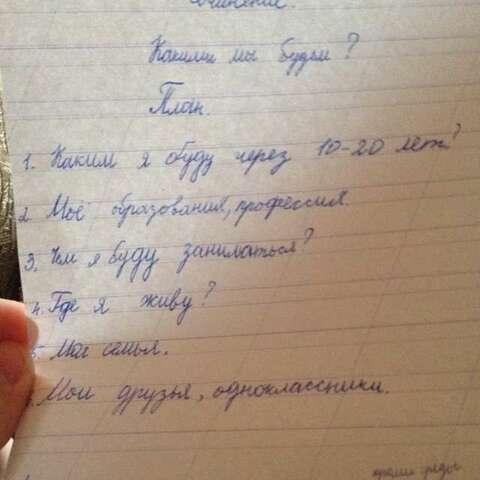 Сочинение.
Какими мы будем?
План.
1. Каким я буду через 10-20 лет?
2. Моё образования, профессия.
3. Чем я буду заниматься?
4. Где я живу?
5. Моя семья.
Мои друзья, одноклассники.